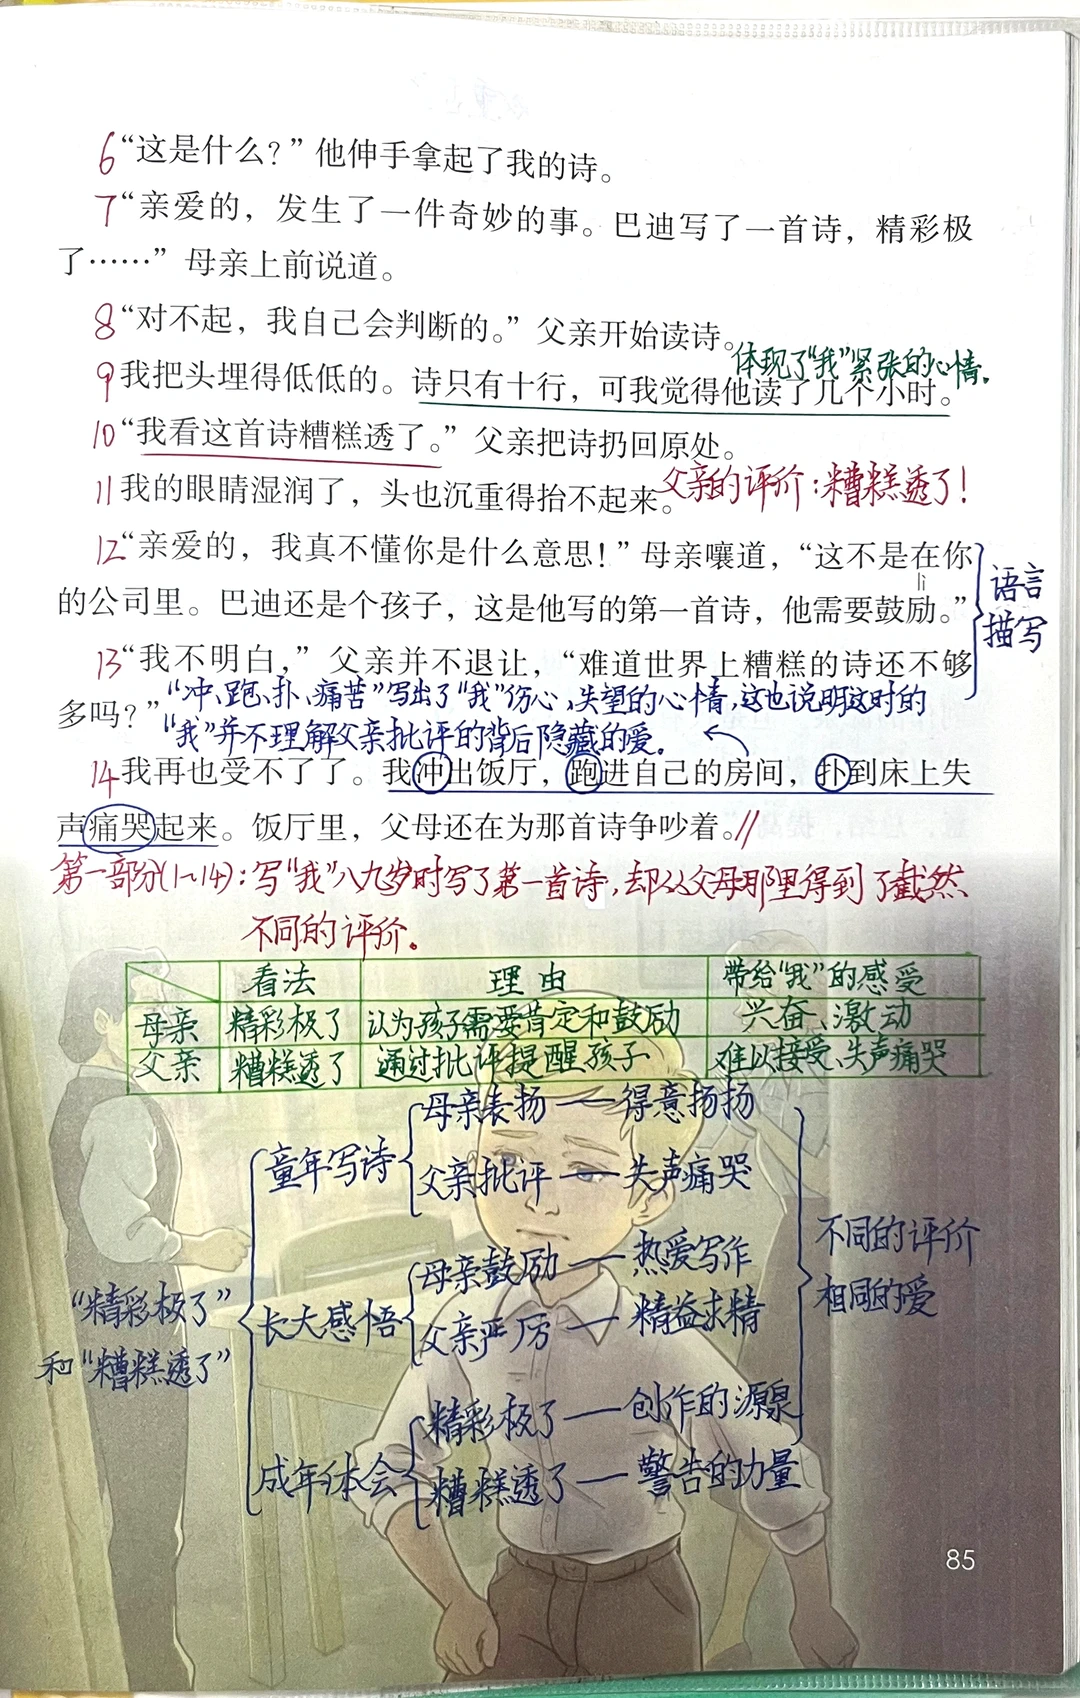 6“这是什么？”他伸手拿起了我的诗。
7“亲爱的，发生了一件奇妙的事。巴迪写了一首诗，精彩极
了……”母亲上前说道。
8“对不起，我自己会判断的。”父亲开始读诗。
体现了“我”紧张的心情。
9我把头埋得低低的。诗只有十行，可我觉得他读了几个小时。
10“我看这首诗糟糕透了。”父亲把诗扔回原处。
11我的眼睛湿润了，头也沉重得抬不起来。
父亲的评价：糟糕透了！
12“亲爱的，我真不懂你是什么意思！”母亲嚷道，“这不是在你
lì
的公司里。巴迪还是个孩子，这是他写的第一首诗，他需要鼓励。”
语言
描写
13“我不明白，”父亲并不退让，“难道世界上糟糕的诗还不够
多吗？”
“冲、跑、扑、痛苦”写出了“我”伤心、失望的心情，这也说明这时的
“我”并不理解父亲批评的背后隐藏的爱。
14我再也受不了了。我冲出饭厅，跑进自己的房间，扑到床上失
声痛哭起来。饭厅里，父母还在为那首诗争吵着。//
第一部分(1~14)：写“我”八九岁时写了第一首诗，却从父母那里得到了截然
不同的评价。
看法 理由 带给“我”的感受
母亲 精彩极了 认为孩子需要肯定和鼓励 兴奋、激动
父亲 糟糕透了 通过批评提醒孩子 难以接受、失声痛哭
“精彩极了”
和“糟糕透了”
童年写诗
母亲表扬——得意扬扬
父亲批评——失声痛哭
长大感悟
母亲鼓励——热爱写作
父亲严厉——精益求精
成年体会
精彩极了——创作的源泉
糟糕透了——警告的力量
不同的评价
相同的爱
85